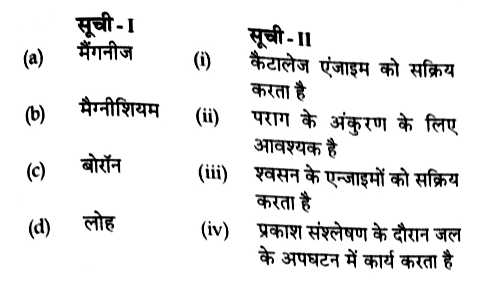 सूची - I सूची - II
(a) मैंगनीज (i) कैटालेज एंजाइम को सक्रिय
करता है
(b) मैग्नीशियम (ii) पराग के अंकुरण के लिए
आवश्यक है
(c) बोरॉन (iii) श्वसन के एन्जाइमों को सक्रिय
करता है
(d) लोह (iv) प्रकाश संश्लेषण के दौरान जल
के अपघटन में कार्य करता है